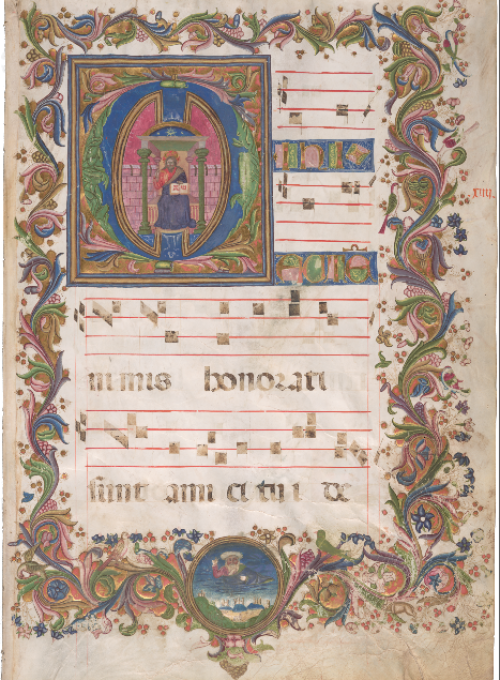 Mihi
nimis honorati
sunt ami ci tu i de